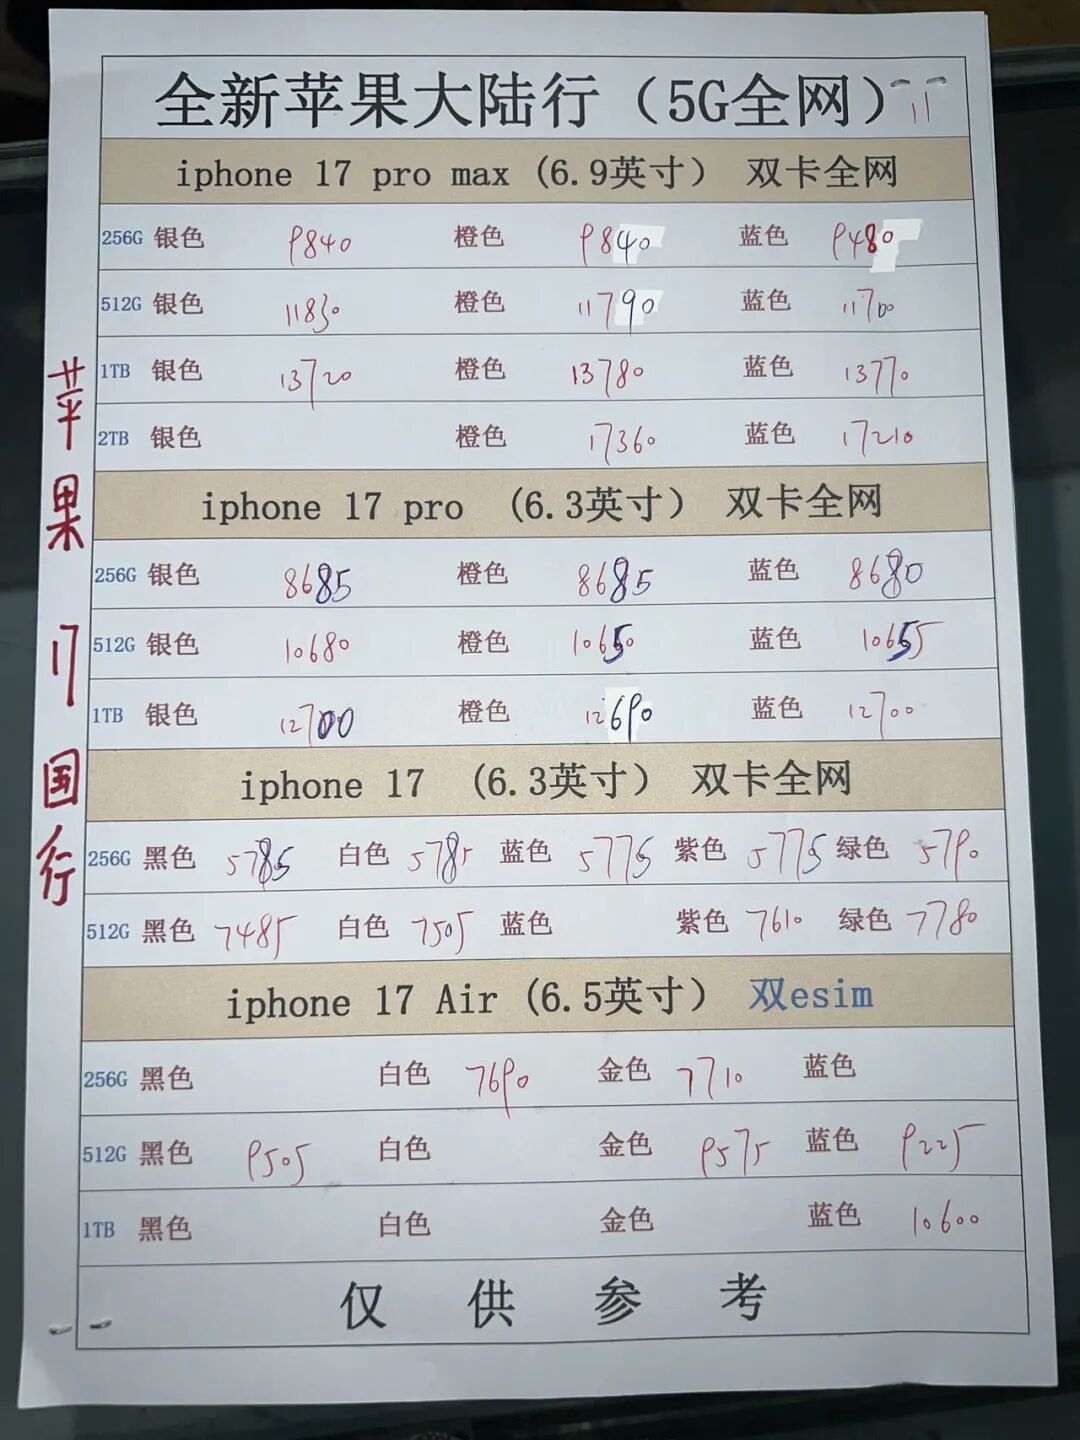 全新苹果大陆行（5G全网） 11
iphone 17 pro max (6.9英寸） 双卡全网
256G 银色 9840 橙色 9840 蓝色 9480
512G 银色 11830 橙色 11790 蓝色 11700
1TB 银色 13720 橙色 13780 蓝色 13770
2TB 银色 橙色 17360 蓝色 17210
iphone 17 pro (6.3英寸） 双卡全网
256G 银色 8685 橙色 8685 蓝色 8680
512G 银色 10680 橙色 10650 蓝色 10655
1TB 银色 12700 橙色 12690 蓝色 12700
iphone 17 (6.3英寸） 双卡全网
256G 黑色 5785 白色 5785 蓝色 5775 紫色 5775 绿色 5790
512G 黑色 7485 白色 7505 蓝色 紫色 7610 绿色 7780
iphone 17 Air (6.5英寸） 双esim
256G 黑色 白色 7690 金色 7710 蓝色
512G 黑色 9505 白色 金色 9575 蓝色 9225
1TB 黑色 白色 金色 蓝色 10600
仅供参考
苹果17国行